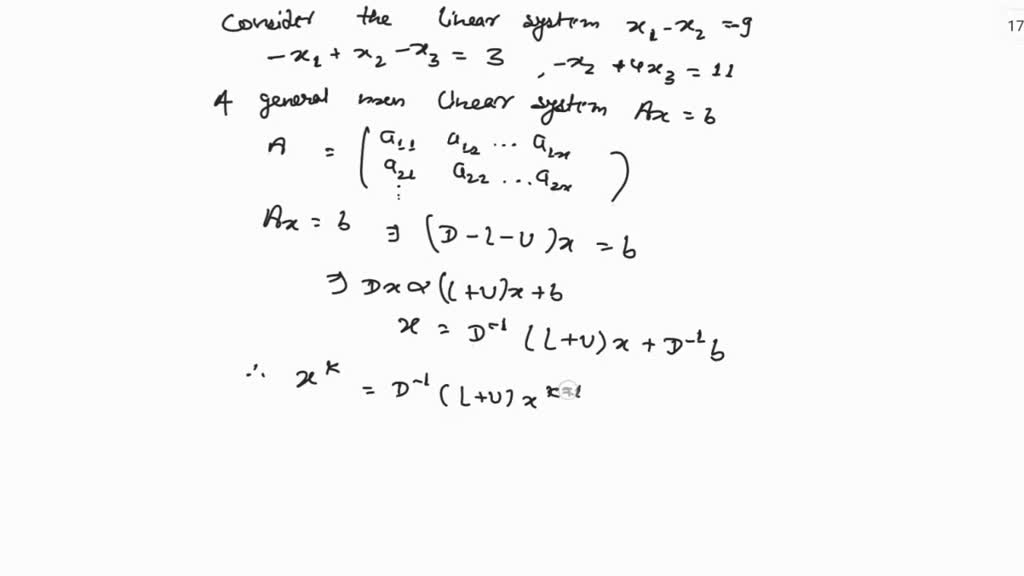 Consider the linear system x₁ - x₂ = -9
17
-x₁ + x₂ - x₃ = 3 , -x₂ + 4x₃ = 11
A general nxn linear system Ax = b
A = ( a₁₁ a₁₂ ... a₁ₙ
a₂₁ a₂₂ ... a₂ₙ )
⋮
Ax = b ∃ (D - L - U)x = b
∃ Dx ∝ (L+U)x + b
x = D⁻¹ (L+U)x + D⁻¹ b
∴ xᵏ = D⁻¹ (L+U) xᵏ⁼¹